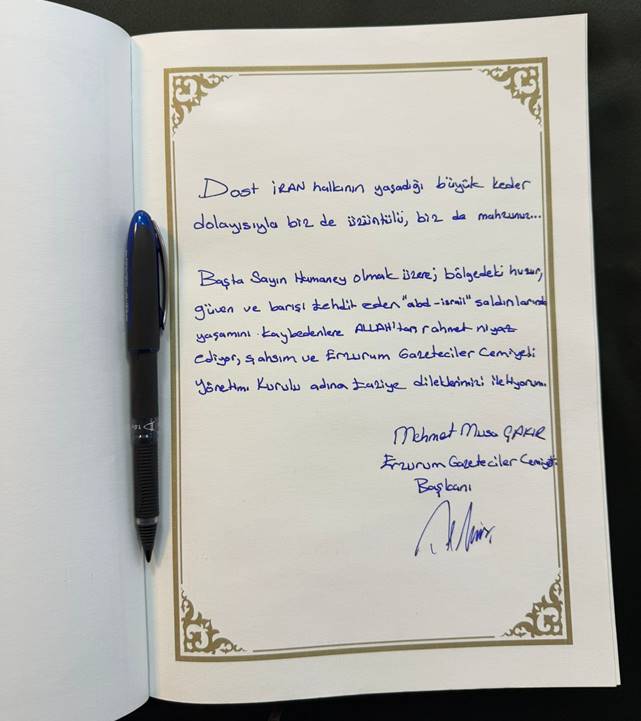 Dost İRAN halkının yaşadığı büyük keder
dolayısıyla biz de üzüntülü, biz de mahzunuz...
Başta Sayın Humaney olmak üzere; bölgedeki huzur,
güven ve barışı tehdit eden "abd-israil" saldırılarında
yaşamını kaybedenlere ALLAH'tan rahmet niyaz
ediyor, şahsım ve Erzurum Gazeteciler Cemiyeti
Yönetim Kurulu adına taziye dileklerimizi iletiyorum.
Mehmet Musa ÇAKIR
Erzurum Gazeteciler Cemiyeti
Başkanı